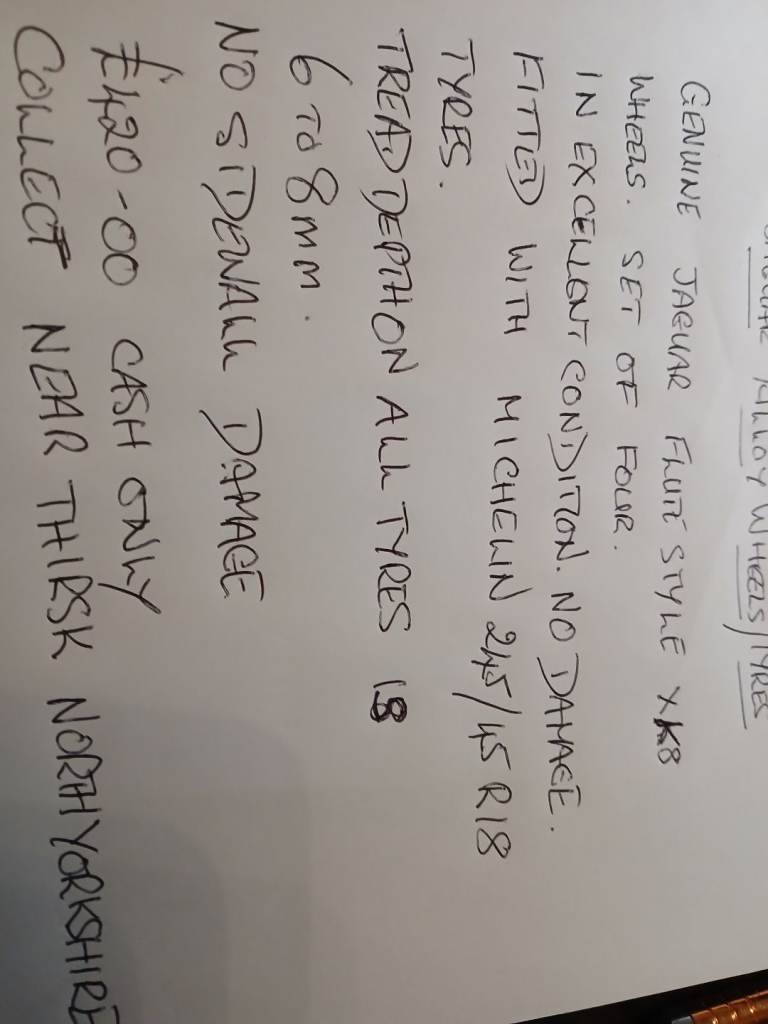 JAGUAR ALLOY WHEELS/TYRES
GENUINE JAGUAR FLUTE STYLE XK8
WHEELS. SET OF FOUR.
IN EXCELLENT CONDITION. NO DAMAGE.
FITTED WITH MICHELIN 245/45 R18
TYRES.
TREAD DEPTH ON ALL TYRES IS
6 TO 8MM.
NO SIDEWALL DAMAGE
£420-00 CASH ONLY
COLLECT NEAR THIRSK NORTH YORKSHIRE